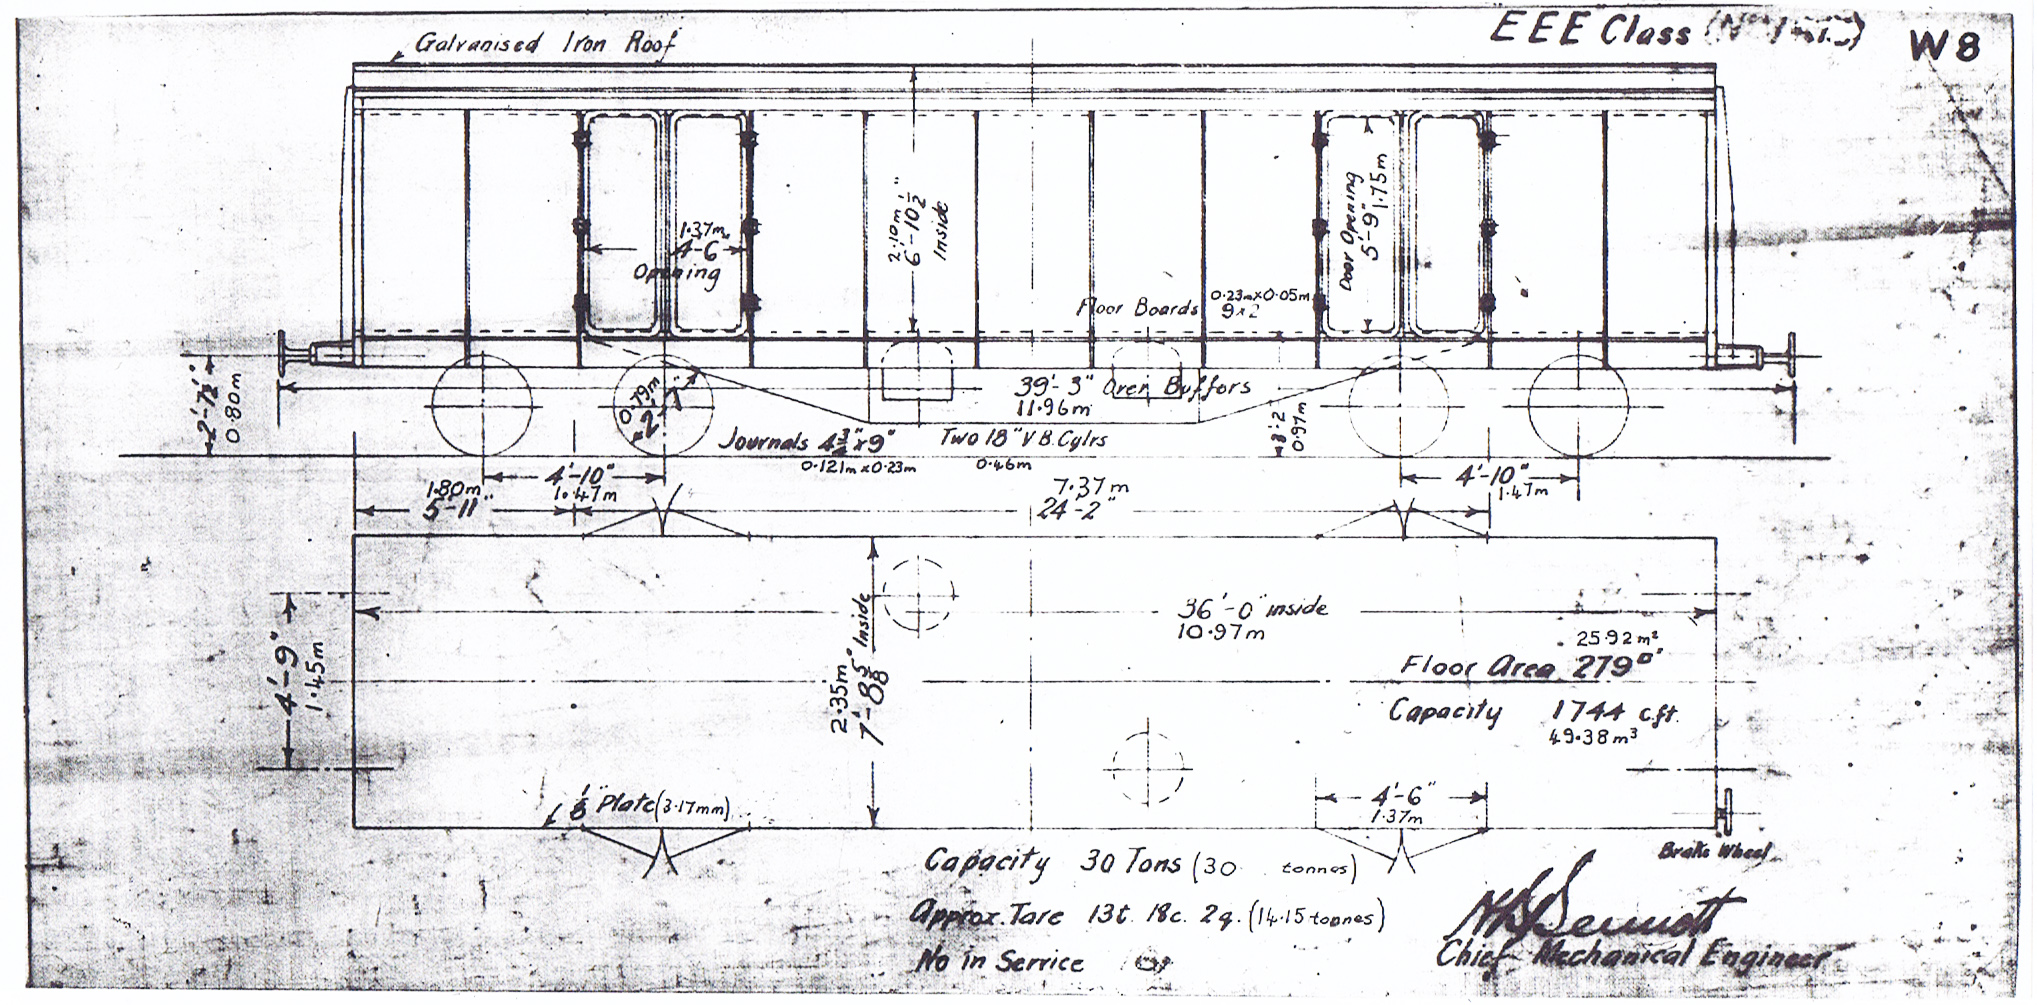 EEE Class
W8
Galvanised Iron Roof
1.37m
4-6
Opening
2.10m
6'-10½"
Inside
Door Opening
5'-9"
1.75m
Floor Boards
0.23m×0.05m
9×2
2'-7½"
0.80m
0.79m
2'-7"
39'-3" Over Buffers
11.96m
3'-2
0.97m
Journals 4¾"×9"
0.121m×0.23m
Two 18" V B. Cylrs
0.46m
4'-10"
1.47m
4'-10"
1.47m
1.80m
5-11"
7.37m
24-2"
36'-0" inside
10.97m
4'-9"
1.45m
2.35m
7'-8⅝" Inside
25.92m²
Floor Area 279□'
Capacity 1744 c.ft.
49.38m³
⅛" Plate (3.17mm)
4'-6"
1.37m
Brake Wheel
Capacity 30 Tons (30 tonnes)
Approx. Tare 13t. 18c. 2q. (14.15 tonnes)
No in Service
Chief Mechanical Engineer